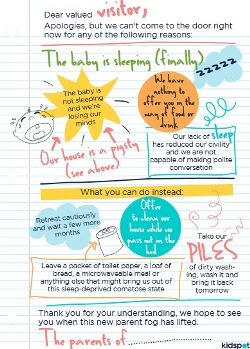 Dear valued visitor,
Apologies, but we can't come to the door right
now for any of the following reasons:
The baby is sleeping (finally)
zzzzz
The baby is
not sleeping
and we're
losing our
minds
We have
nothing to
offer you in the
way of food or
drink
Our house is a pigsty
(see above)
Our lack of sleep
has reduced our civility
and we are not
capable of making polite
conversation
What you can do instead:
Retreat cautiously
and wait a few more
months
Offer
to clean our
house while we
pass out on the
bed
Take our
PILES
of dirty wash-
ing, wash it and
bring it back
tomorrow
Leave a packet of toilet paper, a loaf of
bread, a microwaveable meal or
anything else that might bring us out of
this sleep-deprived comatose state
Thank you for your understanding, we hope to see
you when this new parent fog has lifted.
The parents of
kidspot